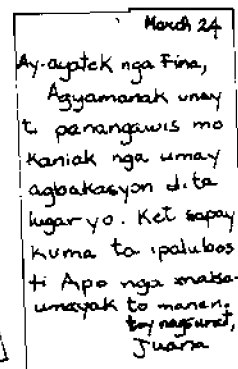 March 24
Ay-ayatek nga Fina,
Agyamanak unay
ti panangawis mo
kaniak nga umay
agbakasyon dita
lugar yo. Ket sapay
kuma ta ipalubos
ti Apo nga maka-
umayak to manen.
toy nagsurat,
Juana